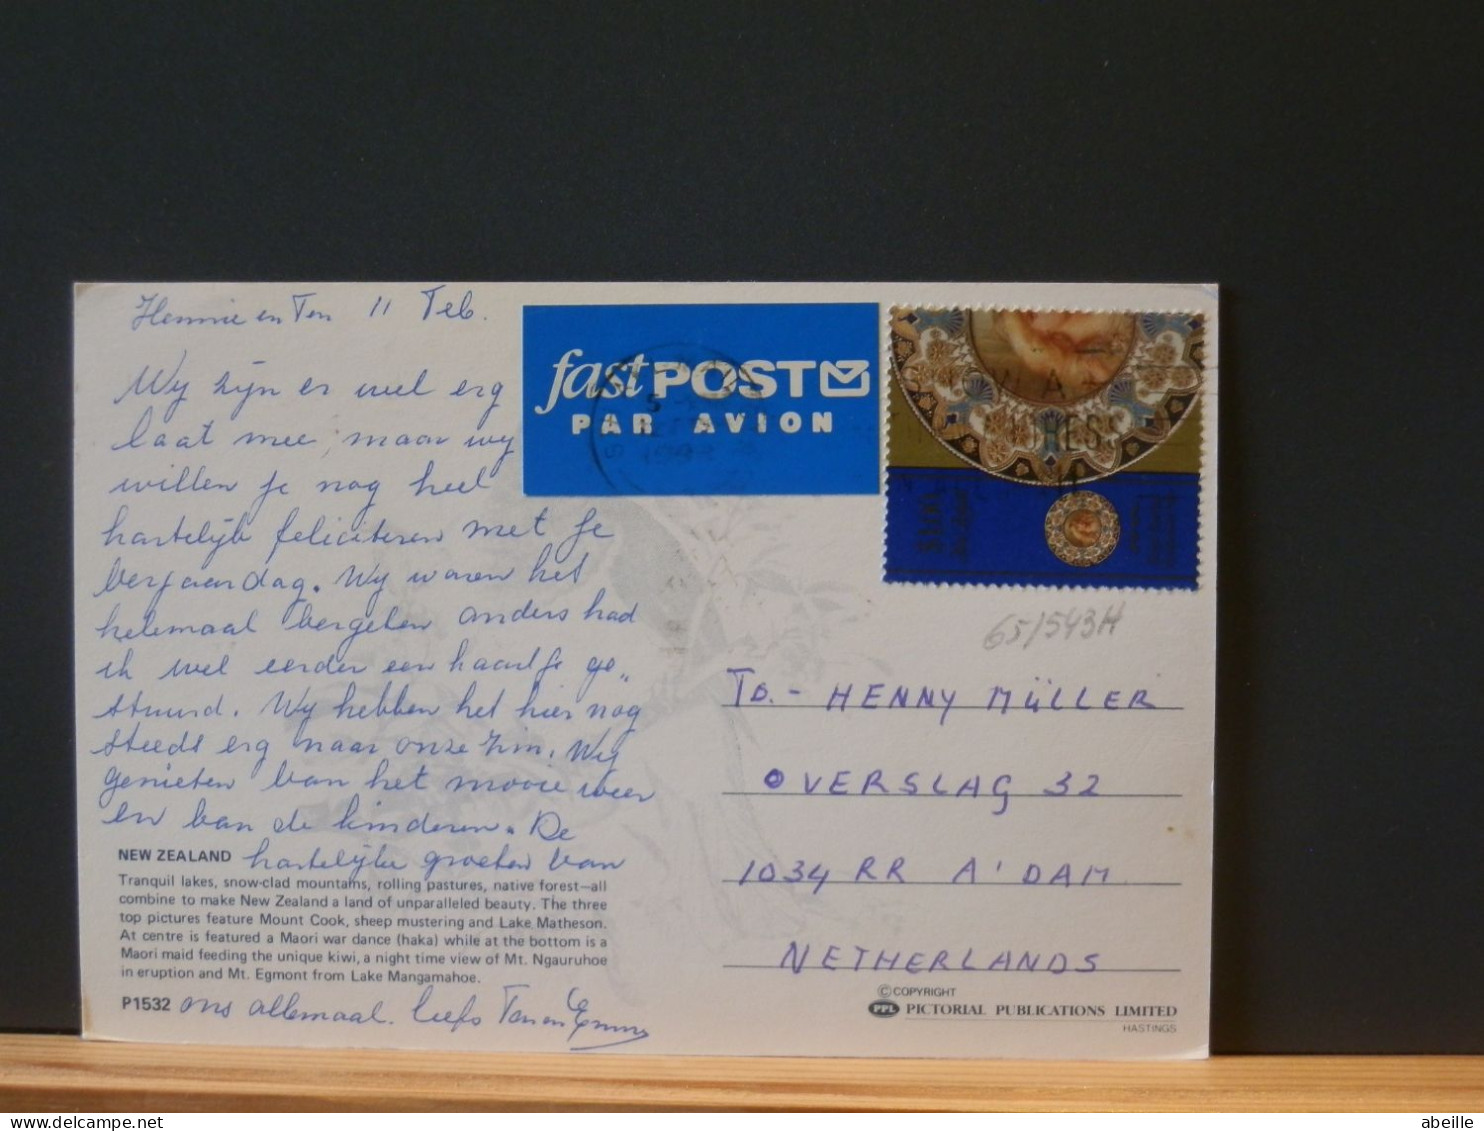 Hennie en Ton 11 Feb.
Wij zijn er wel erg
laat mee, maar wij
willen je nog heel
hartelijk feliciteren met je
verjaardag. Wij waren het
helemaal vergeten anders had
ik wel eerder een kaartje ge„
stuurd. Wij hebben het hier nog
steeds erg naar onze zin. Wij
genieten van het mooie weer
en van de kinderen. De
hartelijke groeten van
ons allemaal. liefs Ton en Emmy
NEW ZEALAND
Tranquil lakes, snow-clad mountains, rolling pastures, native forest—all
combine to make New Zealand a land of unparalleled beauty. The three
top pictures feature Mount Cook, sheep mustering and Lake Matheson.
At centre is featured a Maori war dance (haka) while at the bottom is a
Maori maid feeding the unique kiwi, a night time view of Mt. Ngauruhoe
in eruption and Mt. Egmont from Lake Mangamahoe.
P1532
fast POST
PAR AVION
65/543H
To.- HENNY MÜLLER
OVERSLAG 32
1034 RR A'DAM
NETHERLANDS
© COPYRIGHT
PPL PICTORIAL PUBLICATIONS LIMITED
HASTINGS
abeille